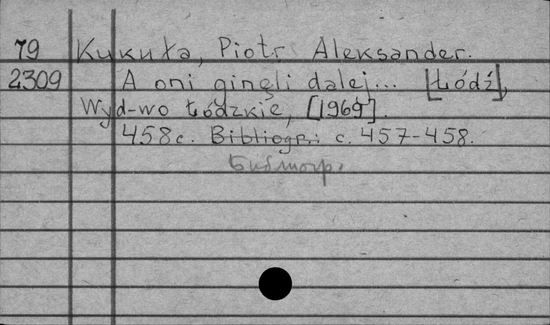 79 Kukuła, Piotr Aleksander.
2309 A oni ginęli dalej... [Łódź],
Wyd-wo Łódzkie, [1969].
458c. Bibliogr.: c. 457-458.
Библиогр.